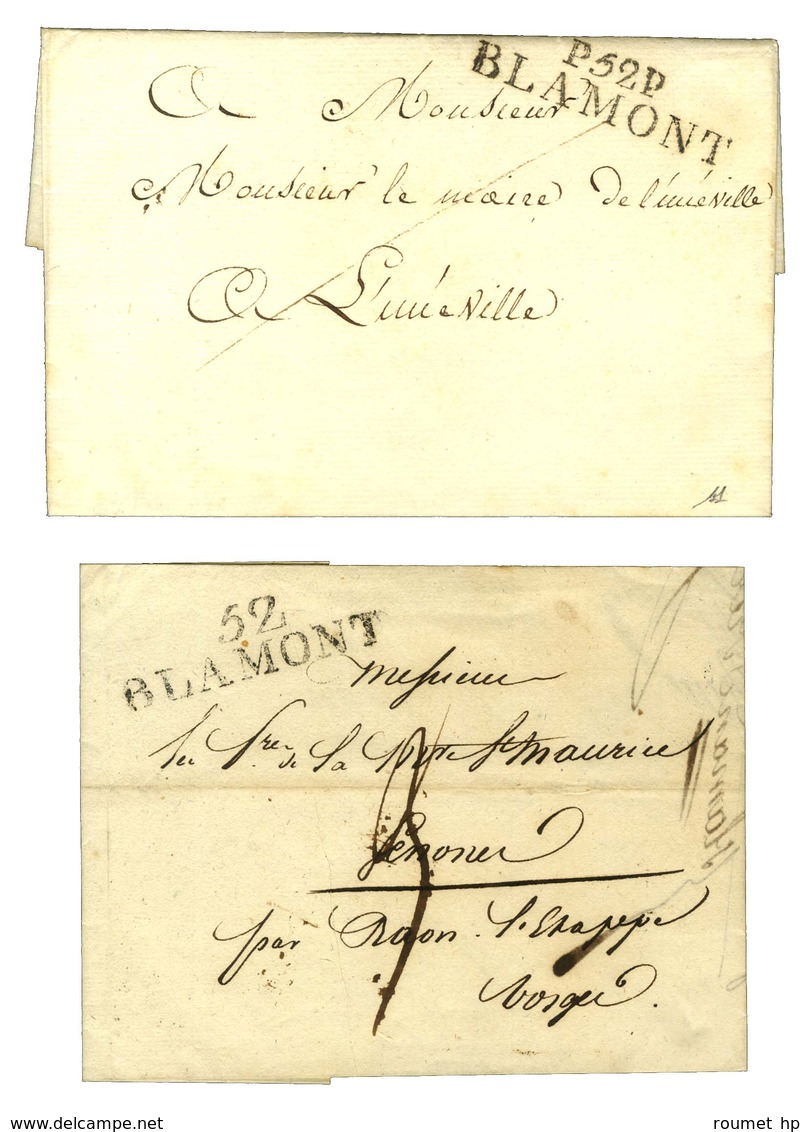 P52P
BLAMONT
A Monsieur
Monsieur le maire de Lunéville
A Lunéville
52
BLAMONT
Messieurs
les de la St Maurice
Senones
par Raon l'Etappe
Vosges.
roumet hp